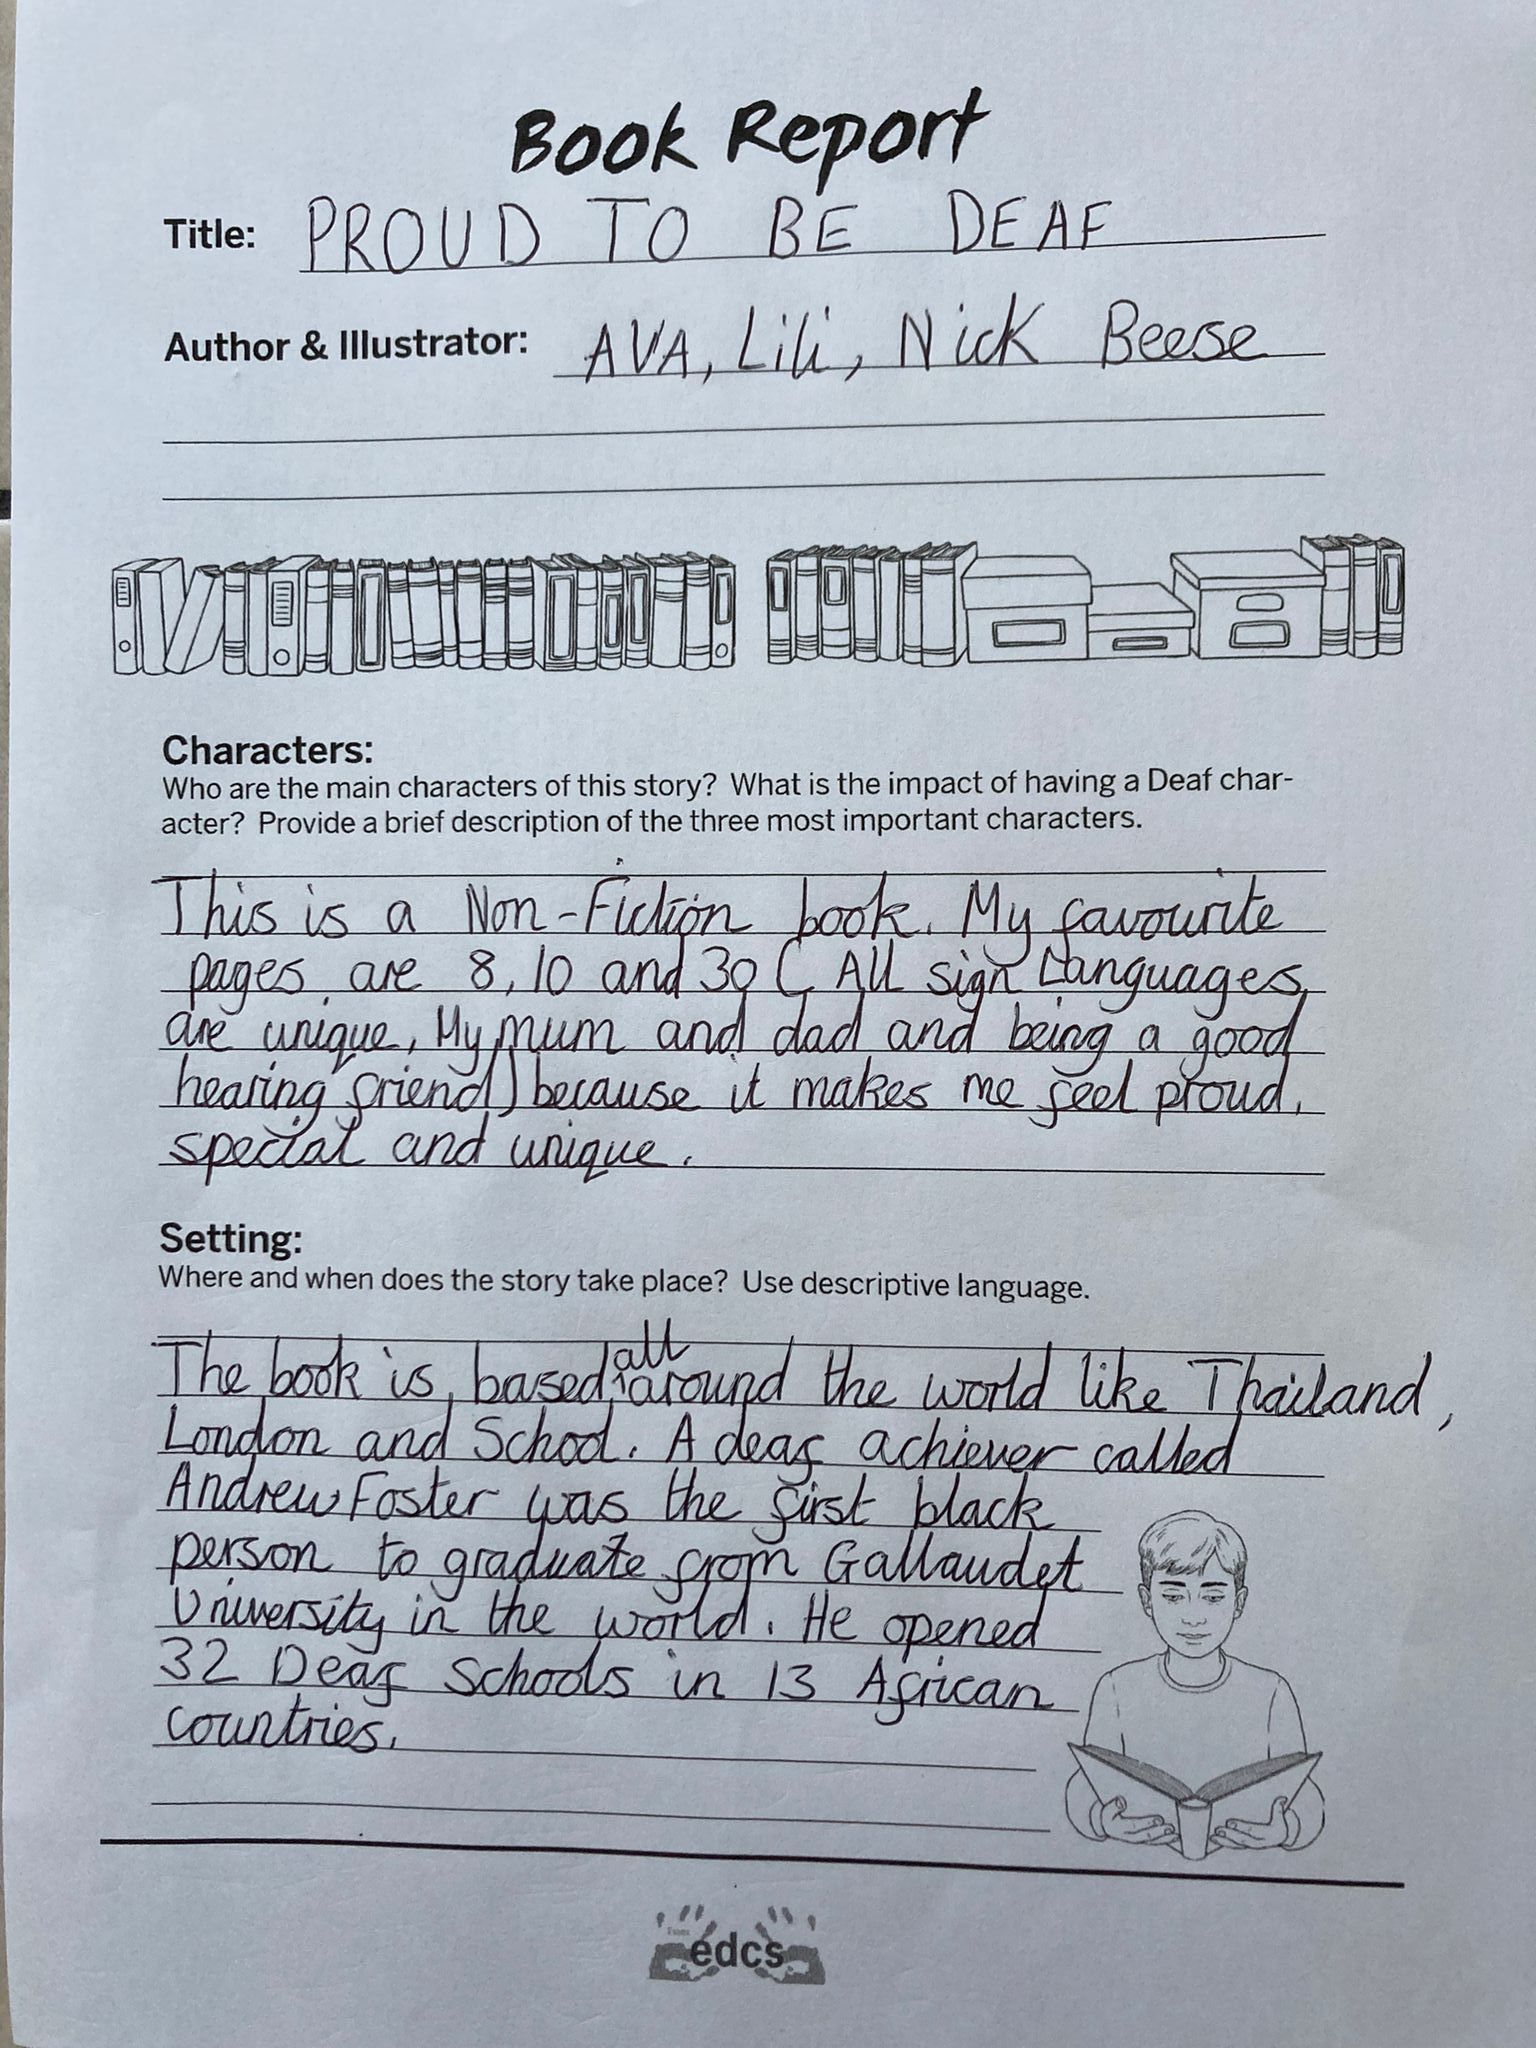 Book Report
Title: PROUD TO BE DEAF
Author & Illustrator: AVA, Lili, Nick Beese
Characters:
Who are the main characters of this story? What is the impact of having a Deaf char-
acter? Provide a brief description of the three most important characters.
This is a Non-Fiction book. My favourite
pages are 8, 10 and 30 ( All sign Languages
are unique, My mum and dad and being a good
hearing friend) because it makes me feel proud,
special and unique.
Setting:
Where and when does the story take place? Use descriptive language.
The book is based all around the world like Thailand,
London and School. A deaf achiever called
Andrew Foster was the first black
person to graduate from Gallaudet
University in the world. He opened
32 Deaf Schools in 13 African
countries.
edcs